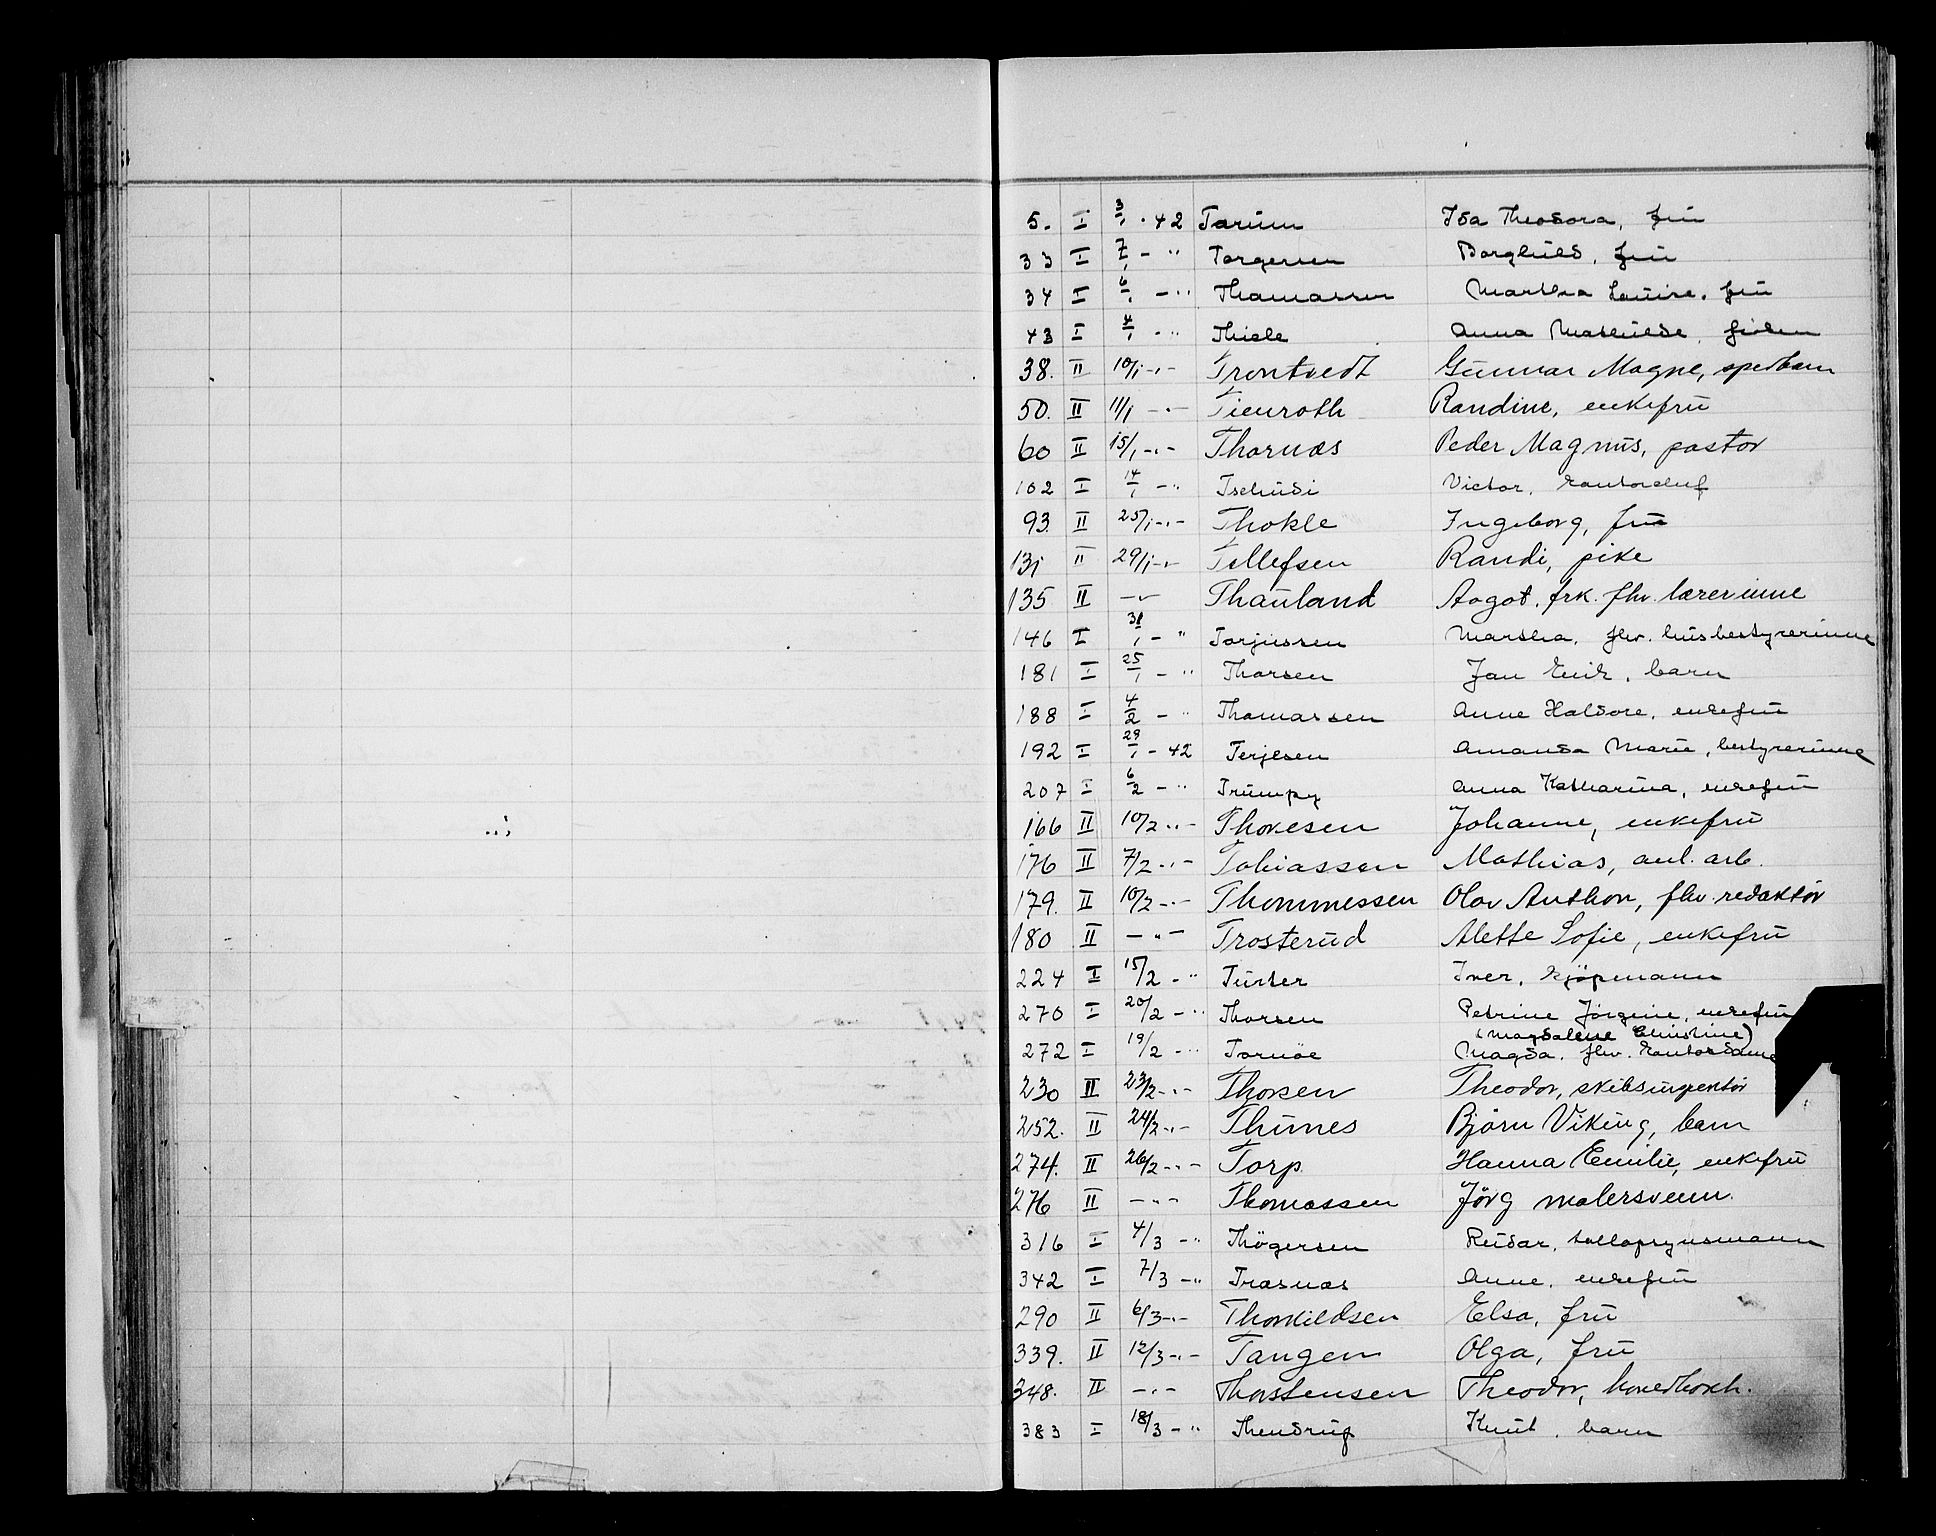 5. I 3/1 · 42 Tarum Ida Theodora, fru
33 I 7/1 - " Torgersen Borghild, fru
34 I 6/1 - " Thomassen Martha Louise, fru
43 I 4/1 - " Thiele Anna Mathilde, frøken
38. II 10/1 -"- Trontvedt Gunnar Magne, spedbarn
50. II 11/1 -"- Tienroth Randine, enkefru
60 II 15/1 -"- Thornæs Peder Magnus, pastor
102 I 14/1 - " Tschudi Victor, kontorchef
93. II 25/1 -"- Thokle Ingeborg, fru
131 II 29/1 -"- Tellefsen Randi, pike
135 II -"- Thauland Aagot, frk. fhv. lærerinne
146 I 31/1 - " Torjussen Martha, fhv. husbestyrerinne
181 I 25/1 - " Thorsen Jan Erik, barn
188 I 4/2 - " Thomassen Anne Haldore, enkefru
192 I 29/1 - 42 Terjesen Amanda Marie, bestyrerinne
207 I 6/2 - " Trumpy Anna Katharina, enkefru
166 II 10/2 -"- Thoresen Johanne, enkefru
176 II 7/2 -"- Tobiassen Mathias, anl. arb.
179. II 10/2 -"- Thommessen Olav Anthon, fhv. redaktør
180 II -"- Trosterud Alette Sofie, enkefru
224 I 15/2 - " Turter Iver, kjöpmann
270 I 20/2 - " Thorsen Petrine Jörgine, enkefru
(Magdalene Christine)
272 I 19/2 - " Tornöe Magda, fhv. kontordame
230 II 23/2 -"- Thorsen Theodor, skibsinspektør
252. II 24/2 -"- Thunes Bjørn Viking, barn
274. II 26/2 -"- Torp Hanna Emilie, enkefru
276 II -"- Thomassen Jörg malersvenn.
316 I 4/3 - " Thögersen Reidar, tollopsynsmann
342 I 7/3 - " Træsnæs Anne, enkefru
290 II 6/3 -"- Thorkildsen Elsa, fru
339. II 12/3 -"- Tangen Olga, fru
348. II -"- Thorstensen Theodor, hovedbokh.
383 I 18/3 - " Thendrup Knut, barn